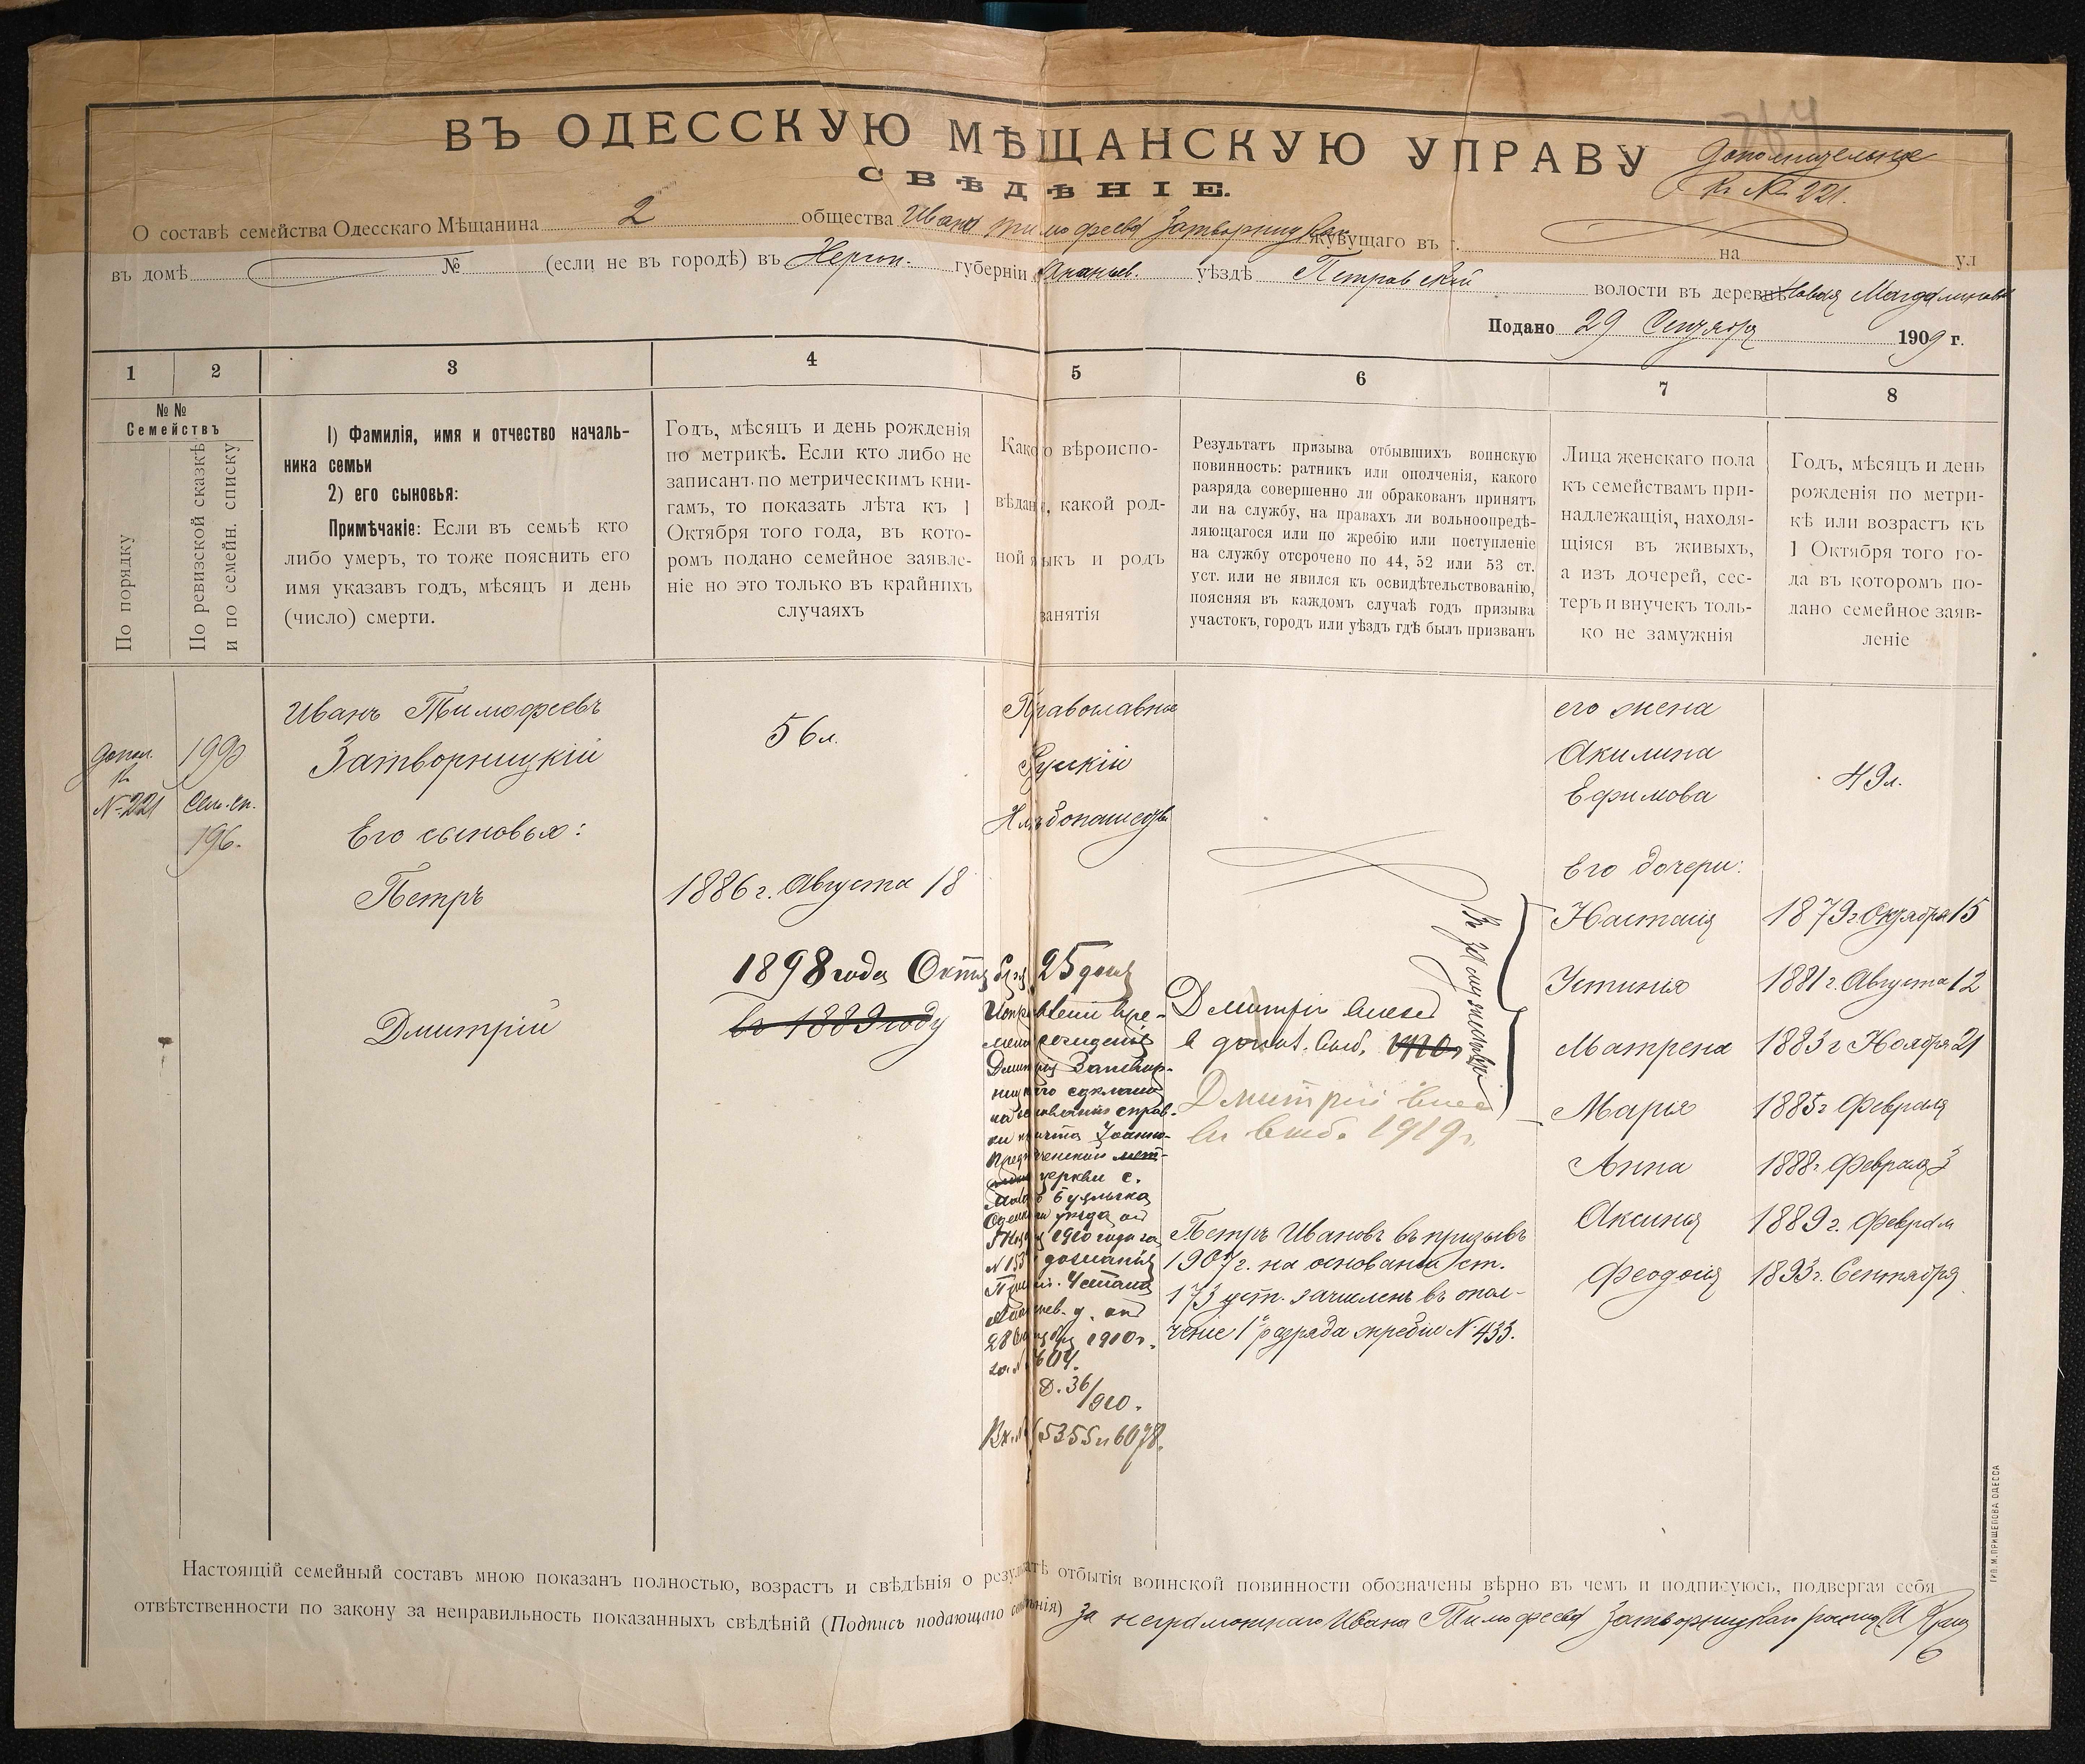 ВЪ ОДЕССКУЮ МѢЩАНСКУЮ УПРАВУ
Дополнительное
къ № 221.
СВѢДѢНІЕ.
О составѣ семейства Одесскаго Мѣщанина 2 общества Ивана Тимофеева Затворницкаго жувущаго въ г.
въ домѣ № (если не въ городѣ) въ Херсон. губерніи Ананьев. уѣздѣ Петровской на ул
волости въ деревнѣ Новая Магдалиновка
Подано 29 Сентября 1909 г.
1 2 3 4 5 6 7 8
№№
Семействъ
По порядку
По ревизской сказкѣ
и по семейн. списку
1) Фамилія, имя и отчество началь-
ника семьи
2) его сыновья:
Примѣчаніе: Если въ семьѣ кто
либо умеръ, то тоже пояснить его
имя указавъ годъ, мѣсяцъ и день
(число) смерти.
Годъ, мѣсяцъ и день рожденія
по метрикѣ. Если кто либо не
записанъ по метрическимъ кни-
гамъ, то показать лѣта къ 1
Октября того года, въ кото-
ромъ подано семейное заявле-
ніе но это только въ крайнихъ
случаяхъ
Какого вѣроиспо-
вѣданія, какой род-
ной языкъ и родъ
занятія
Результатъ призыва отбывшихъ воинскую
повинность: ратникъ или ополченія, какого
разряда совершенно ли обракованъ принятъ
ли на службу, на правахъ ли вольноопредѣ-
ляющагося или по жребію или поступленіе
на службу отсрочено по 44, 52 или 53 ст.
уст. или не явился къ освидѣтельствованію,
поясняя въ каждомъ случаѣ годъ призыва
участокъ, городъ или уѣздъ гдѣ былъ призванъ
Лица женскаго пола
къ семействамъ при-
надлежащія, находя-
щіяся въ живыхъ,
а изъ дочерей, сес-
теръ и внучекъ толь-
ко не замужнія
Годъ, мѣсяцъ и день
рожденія по метри-
кѣ или возрастъ къ
1 Октября того го-
да въ которомъ по-
дано семейное заяв-
леніе
допол.
къ
№ 221
1990
Сем. сп.
196.
Иванъ Тимофеевъ
Затворницкій
Его сыновья:
Петръ
Дмитрій
56 л.
1886 г. Августа 18
1898 года Октября 25 дня
въ 1889 году
Православное
Русскій
Хлѣбопашество
Исправленіе вре-
мени рожденія
Дмитрія Затвор-
ницкаго сдѣлано
на основаніи справ-
ки причта Іоанно-
Предтеченской
церкви с.
Буялыка
Одесскаго уѣзда от
1910 года за
№ 153 дознанія
Ананьев. у. от
28 1910 г.
за № 604.
Д. 36/910.
Вх. № 5355 и 6078.
Дмитрій внесен
в допол. выб. 1920 г.
Дмитрій внес
въ выб. 1919 г.
Петръ Ивановъ въ призывъ
1907 г. на основаніи ст.
173 уст. зачисленъ въ опол-
ченіе 1го разряда жребій № 433.
Въ замужествѣ
его жена
Акилина
Ефимова
Его дочери:
Настасія
Устинія
Матрена
Марія
Анна
Аксинія
Феодосія
49 л.
1879 г. Октября 15
1881 г Августа 12
1883 г Ноября 21
1885 г Февраля
1888 г. Февраля 3
1889 г. Февраля
1893 г. Сентября
Настоящій семейный составъ мною показанъ полностью, возрастъ и свѣдѣнія о результатѣ отбытія воинской повинности обозначены вѣрно въ чемъ и подписуюсь, подвергая себя
отвѣтственности по закону за неправильность показанныхъ свѣдѣній (Подпись подающаго свѣдѣнія) За неграмотнаго Ивана Тимофеева Затворницкаго
ТИП. М. ПРИЩЕПОВА ОДЕССА